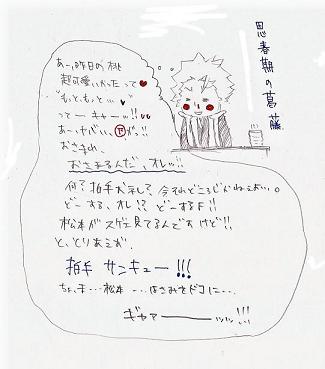 思春期の葛藤
あー、昨日の桃
超可愛いかったって♥
"もっと、もっと…♥
って ーキャーッ!!♥♥
あーやばい、ヤバがっ!!
おさまれ、
おさまるんだ、オレッ!!
何?拍手お礼って 今それどころじゃねぇよい。
どーする、オレ!? どーするよ!!
松本がスゲェ見てるんですけど!!
と、とりあえず、
拍手 サンキュー!!!
ちょ、ま…松本 …はさみをドコに…
ギャァーーーッッ!!!